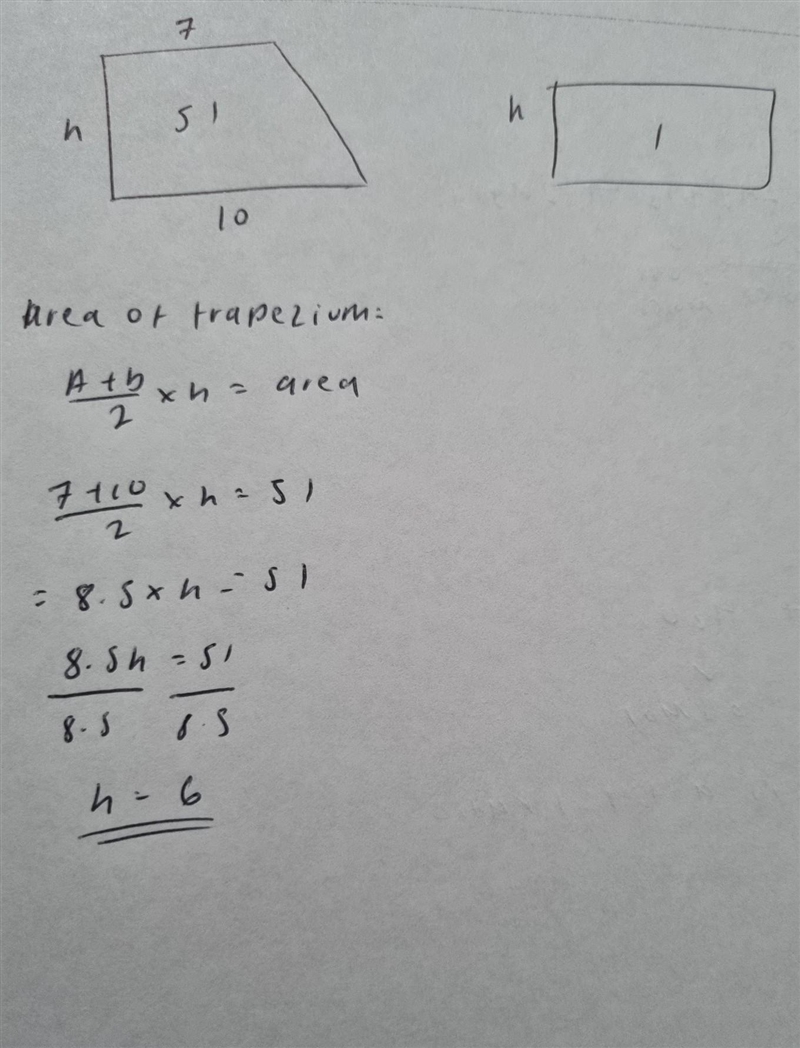 7
h
51
10
h
1
Area of trapezium:
A + b / 2 × h = area
7 + 10 / 2 × h = 51
= 8.5 × h = 51
8.5h = 51
8.5 8.5
h = 6